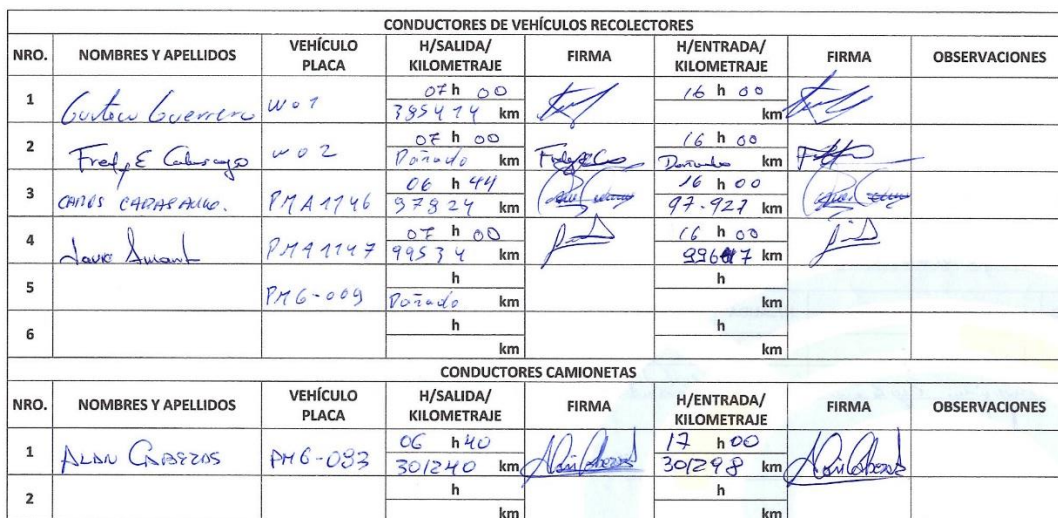 CONDUCTORES DE VEHÍCULOS RECOLECTORES
NRO. NOMBRES Y APELLIDOS VEHÍCULO PLACA H/SALIDA/ KILOMETRAJE FIRMA H/ENTRADA/ KILOMETRAJE FIRMA OBSERVACIONES
1 Gustavo Guerrero W01 07 h 00 16 h 00
385474 km km
2 Fredy E W02 07 h 00 16 h 00
Dañado km Dañado km
3 CARLOS PMA1746 06 h 44 16 h 00
97824 km 97.927 km
4 PMA1147 07 h 00 16 h 00
99534 km km
5 PMG-009 h h
Dañado km km
6 h h
km km
CONDUCTORES CAMIONETAS
NRO. NOMBRES Y APELLIDOS VEHÍCULO PLACA H/SALIDA/ KILOMETRAJE FIRMA H/ENTRADA/ KILOMETRAJE FIRMA OBSERVACIONES
1 ALAN CABEZAS PMG-093 06 h 40 17 h 00
301240 km 301298 km
2 h h
km km